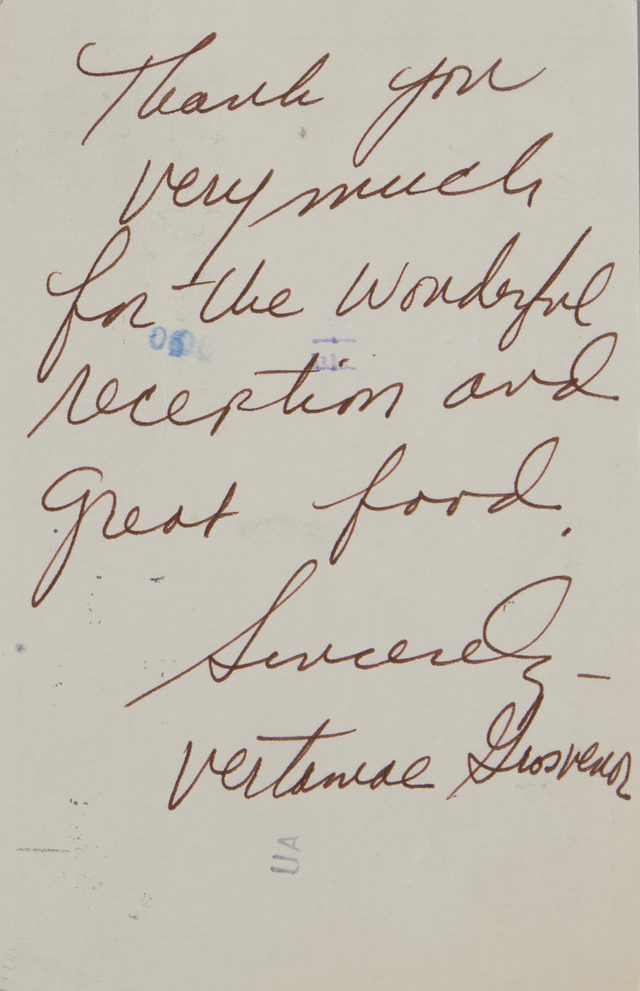 Thank you
very much
for the wonderful
reception and
great food.
Sincerely -
Vertamae Grosvenor